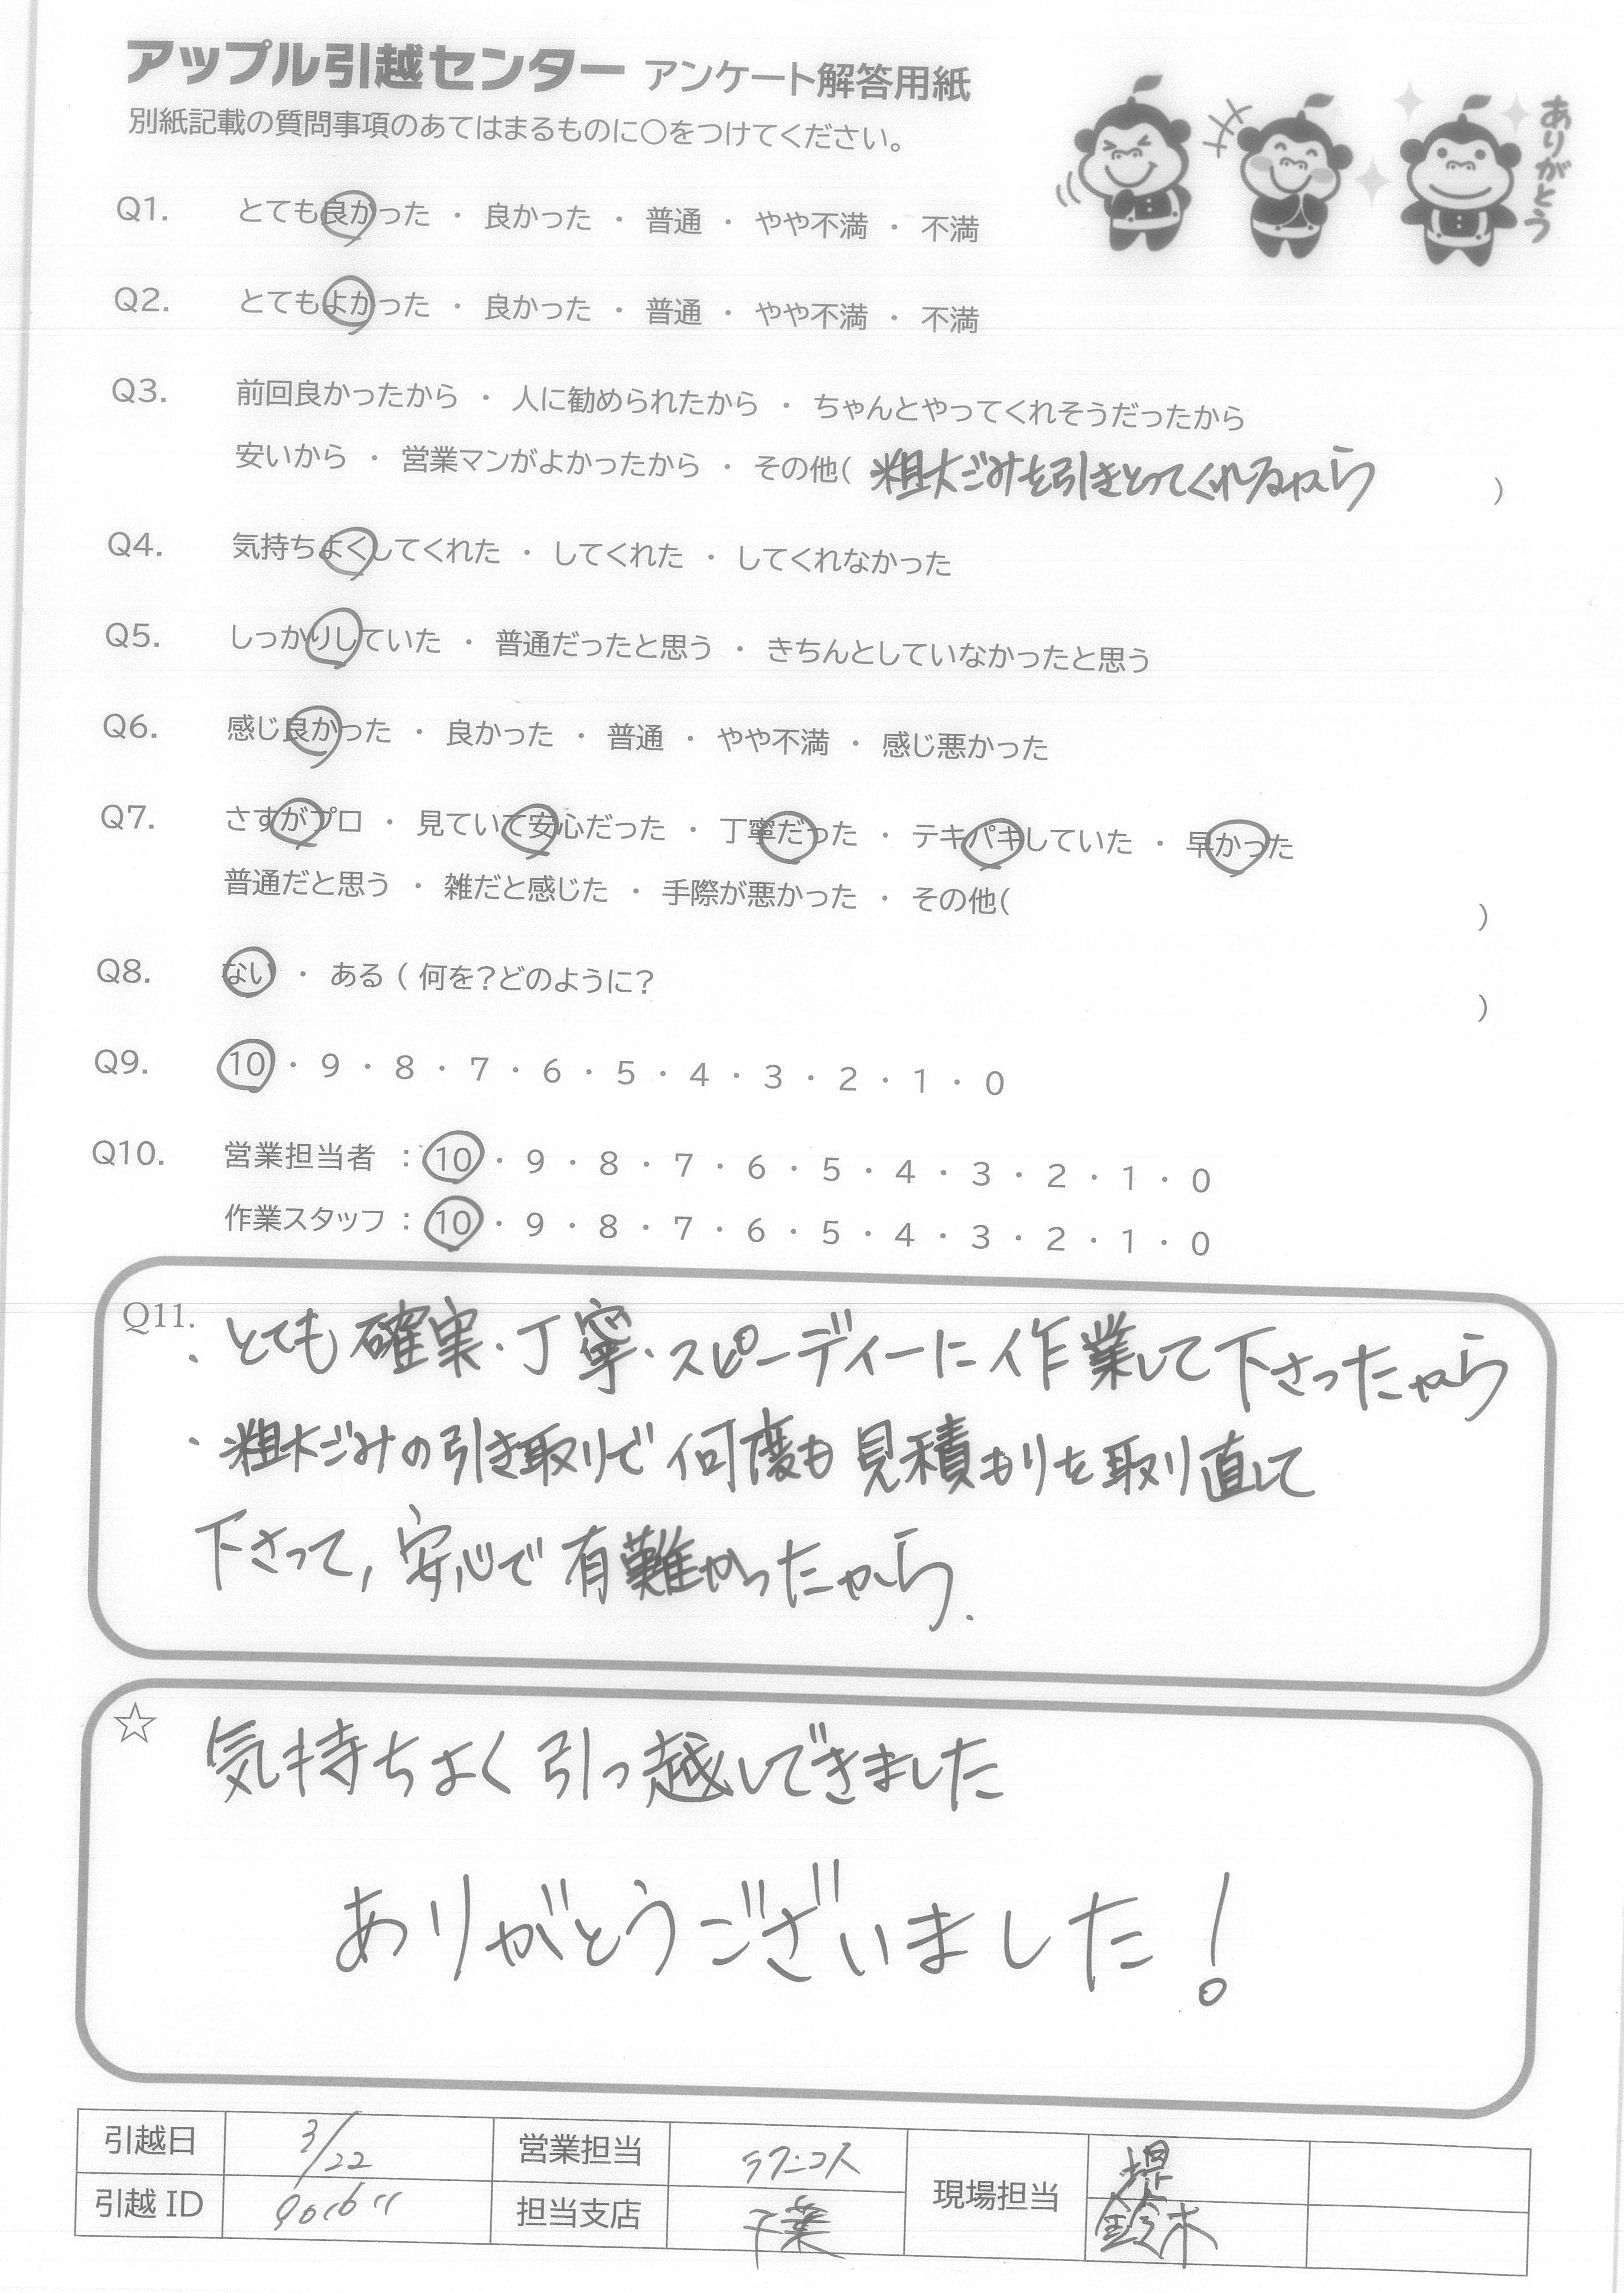 アップル引越センター アンケート解答用紙
別紙記載の質問事項のあてはまるものに○をつけてください。
ありがとう
Q1. とても良かった ・ 良かった ・ 普通 ・ やや不満 ・ 不満
Q2. とてもよかった ・ 良かった ・ 普通 ・ やや不満 ・ 不満
Q3. 前回良かったから ・ 人に勧められたから ・ ちゃんとやってくれそうだったから
安いから ・ 営業マンがよかったから ・ その他( 粗大ごみを引きとってくれるから )
Q4. 気持ちよくしてくれた ・ してくれた ・ してくれなかった
Q5. しっかりしていた ・ 普通だったと思う ・ きちんとしていなかったと思う
Q6. 感じ良かった ・ 良かった ・ 普通 ・ やや不満 ・ 感じ悪かった
Q7. さすがプロ ・ 見ていて安心だった ・ 丁寧だった ・ テキパキしていた ・ 早かった
普通だと思う ・ 雑だと感じた ・ 手際が悪かった ・ その他( )
Q8. ない ・ ある ( 何を?どのように? )
Q9. 10 ・ 9 ・ 8 ・ 7 ・ 6 ・ 5 ・ 4 ・ 3 ・ 2 ・ 1 ・ 0
Q10. 営業担当者 : 10 ・ 9 ・ 8 ・ 7 ・ 6 ・ 5 ・ 4 ・ 3 ・ 2 ・ 1 ・ 0
作業スタッフ : 10 ・ 9 ・ 8 ・ 7 ・ 6 ・ 5 ・ 4 ・ 3 ・ 2 ・ 1 ・ 0
Q11. ・とても確実・丁寧・スピーディーに作業して下さったから
・粗大ごみの引き取りで何度も見積もりを取り直して
下さって、安心で有難かったから.
☆ 気持ちよく引っ越しできました
ありがとうございました!
引越日 3/22 営業担当 現場担当 堤
引越ID 担当支店 千葉 鈴木